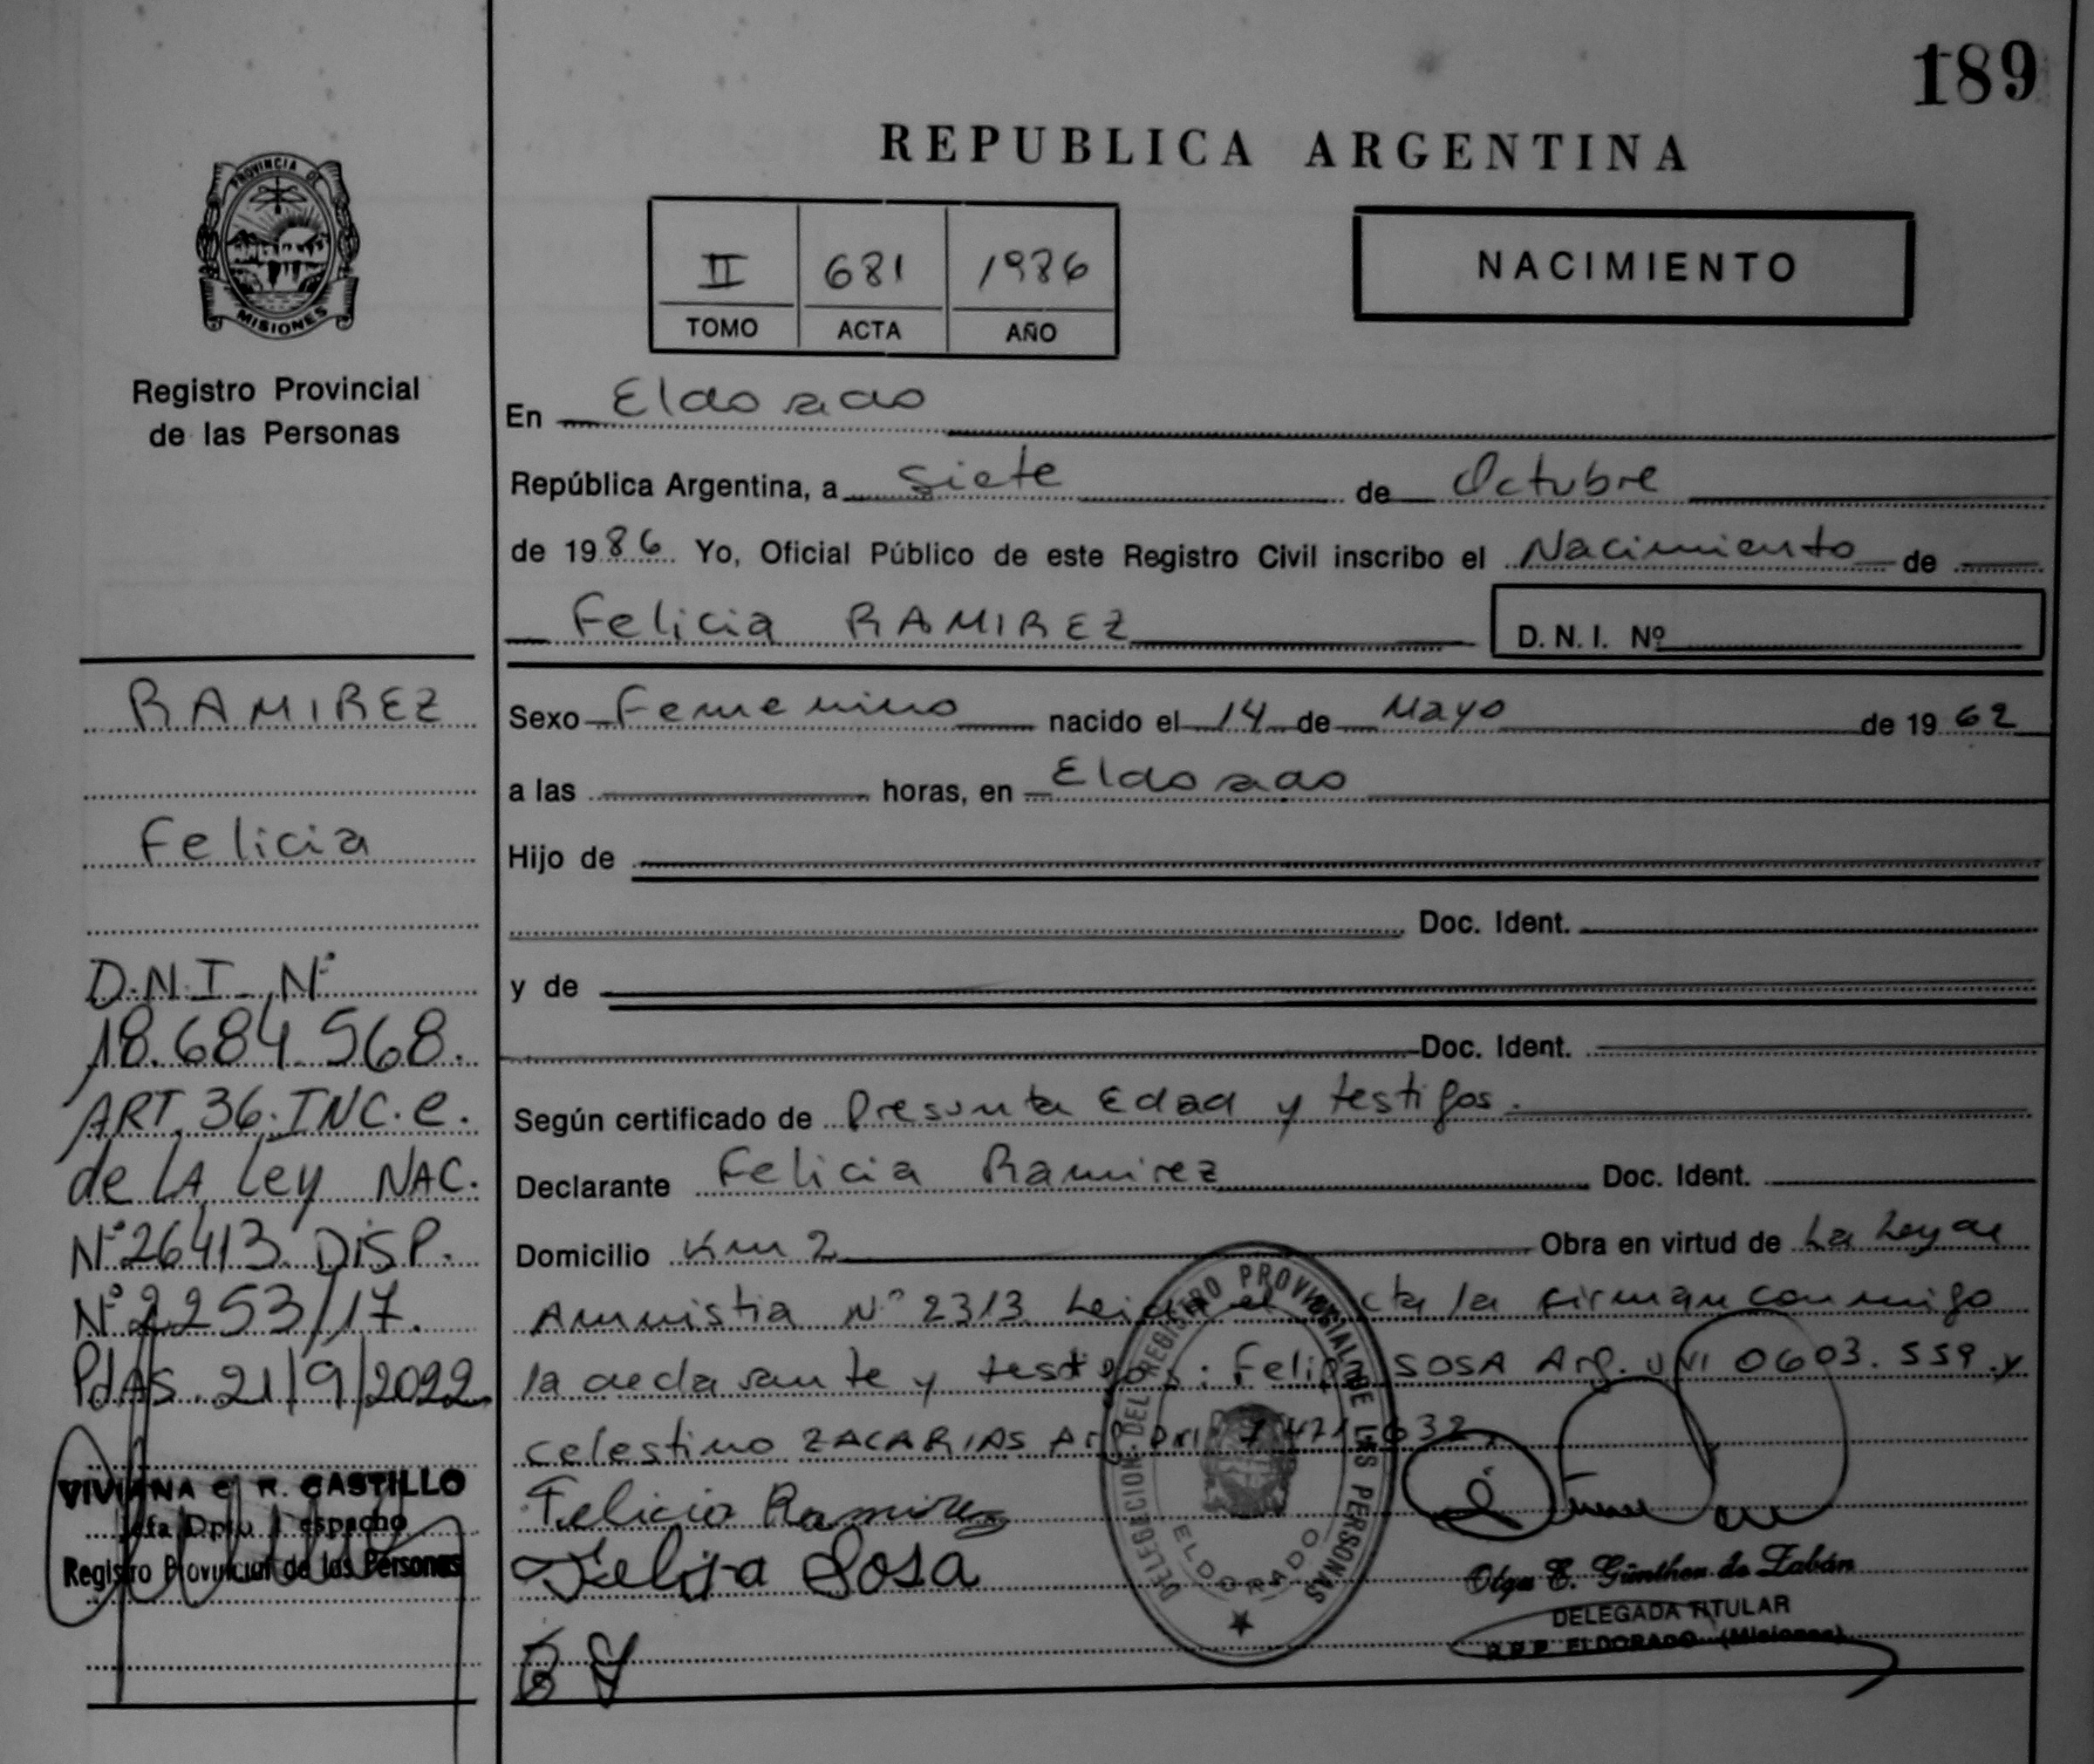 189
REPUBLICA ARGENTINA
PROVINCIA DE
MISIONES
Registro Provincial
de las Personas
II 681 1986
TOMO ACTA AÑO
NACIMIENTO
En Eldorado
República Argentina, a siete de Octubre
de 1986 Yo, Oficial Público de este Registro Civil inscribo el Nacimiento de
Felicia RAMIREZ D. N. I. Nº
Sexo Femenino nacido el 14 de Mayo de 1962
a las horas, en Eldorado
Hijo de
Doc. Ident.
y de
Doc. Ident.
Según certificado de Presunta Edad y testigos.
Declarante Felicia Ramirez Doc. Ident.
Domicilio Km 2 Obra en virtud de La Ley de
Amnistia Nº 2313 Leida el acta la firman conmigo
la declarante y testigos: Felisa SOSA Arg. DNI 0603.559 y
celestino ZACARIAS Arg. DNI 7471632
Felicia Ramirez
Felisa Sosa
DELEGACION DEL REGISTRO PROVINCIAL DE LAS PERSONAS
ELDORADO
Olga E. Günther de Zabán
DELEGADA TITULAR
R.P.P. ELDORADO (Misiones)
RAMIREZ
Felicia
D.N.I. Nº
18.684.568.
ART. 36. INC. e.
de LA Ley NAC.
Nº 26413. DISP.
Nº 2253/17.
PdAS. 21/9/2022
VIVIANA C. R. CASTILLO
Jefa Dpto Despacho
Registro Provincial de las Personas